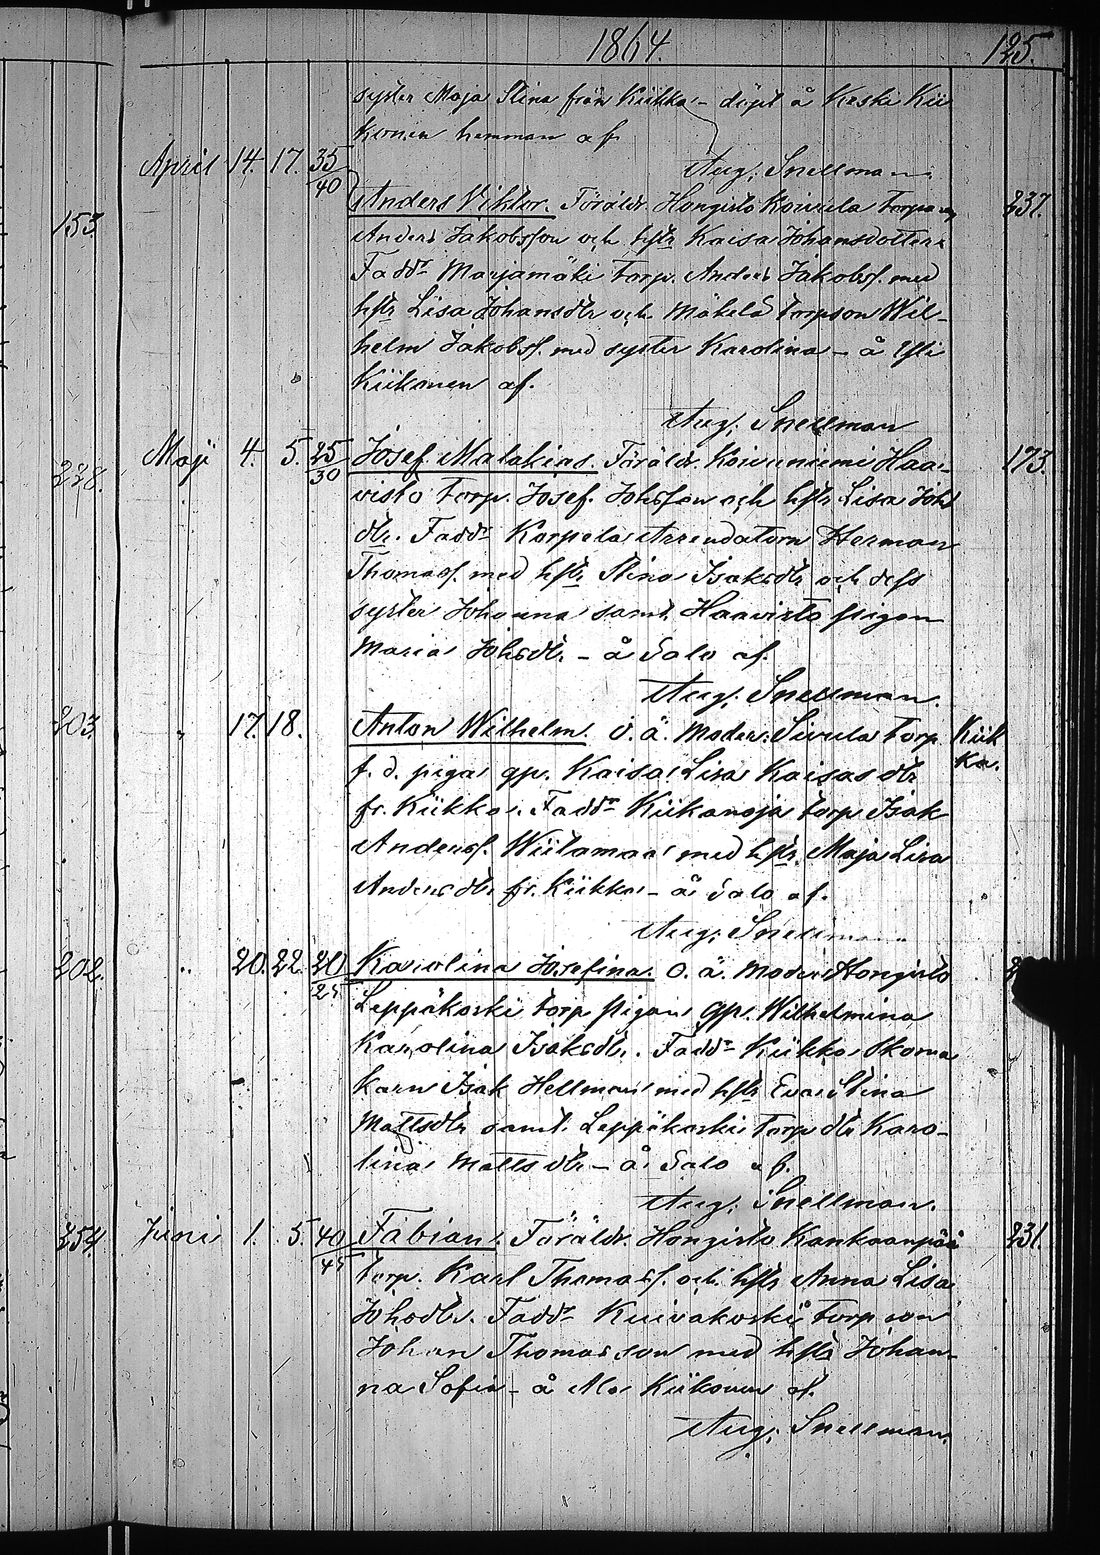 1864. 125.
syster Maja Stina från Kiikka - döpt å Keski Kii
konen hemman af
Aug. Snellman.
April 14. 17. 35/40
153. Anders Viktor. Föräldr. Hongisto Koivula torpar 237.
Anders Jakobsson och hstr Kaisa Johansdotter.
Faddr Marjamäki torp. Anders Jakobss. med
hstr Lisa Johansdtr och Mäkelä torpson Wil-
helm Jakobss. med syster Karolina - å Yli
Kiikonen af.
Aug. Snellman
228. Maji 4. 5. 25/30 Josef Malakias. Föräldr. Koivuniemi Haa- 173.
visto torp. Josef. Johsson och hstr Lisa Joh
dtr. Faddr Korpela Arrendatorn Herman
Thomass. med hstr Stina Isaksdtr och dess
syster Johanna samt Haavisto pigan
Maria Johsdtr. - å Salo af.
Aug. Snellman.
203. " 17. 18. Anton Wilhelm. O. ä. Moder: Sivula torp Kiik
f. d. piga qp. Kaisa Lisa Kaisas dtr ka.
fr. Kiikka. Faddr Kiikanoja torp Isak
Anderss. Wiitamaa med hstr. Maja Lisa
Andersdtr fr. Kiikka - å Salo af.
Aug. Snellman
202. " 20. 22. 20/25 Karolina Josefina. O. ä. Moder Hongisto
Leppäkoski torp pigan qp. Wilhelmina
Karolina Isaksdtr. Faddr Kiikka Skoma
karn Isak Hellman med hstr Eva Stina
Mattsdtr samt Leppäkoski torp dtr Karo-
lina Mattsdtr - å Salo af.
Aug. Snellman.
254. Juni 1. 5. 40/45 Fabian. Föräldr. Hongisto Kankaanpää 231.
torp. Karl Thomass. och hstr Anna Lisa
Johsdtr. Faddr Kuivakoski torp son
Johan Thomasson med hstr Johan-
na Sofia - å Ala Kiikonen af.
Aug. Snellman.